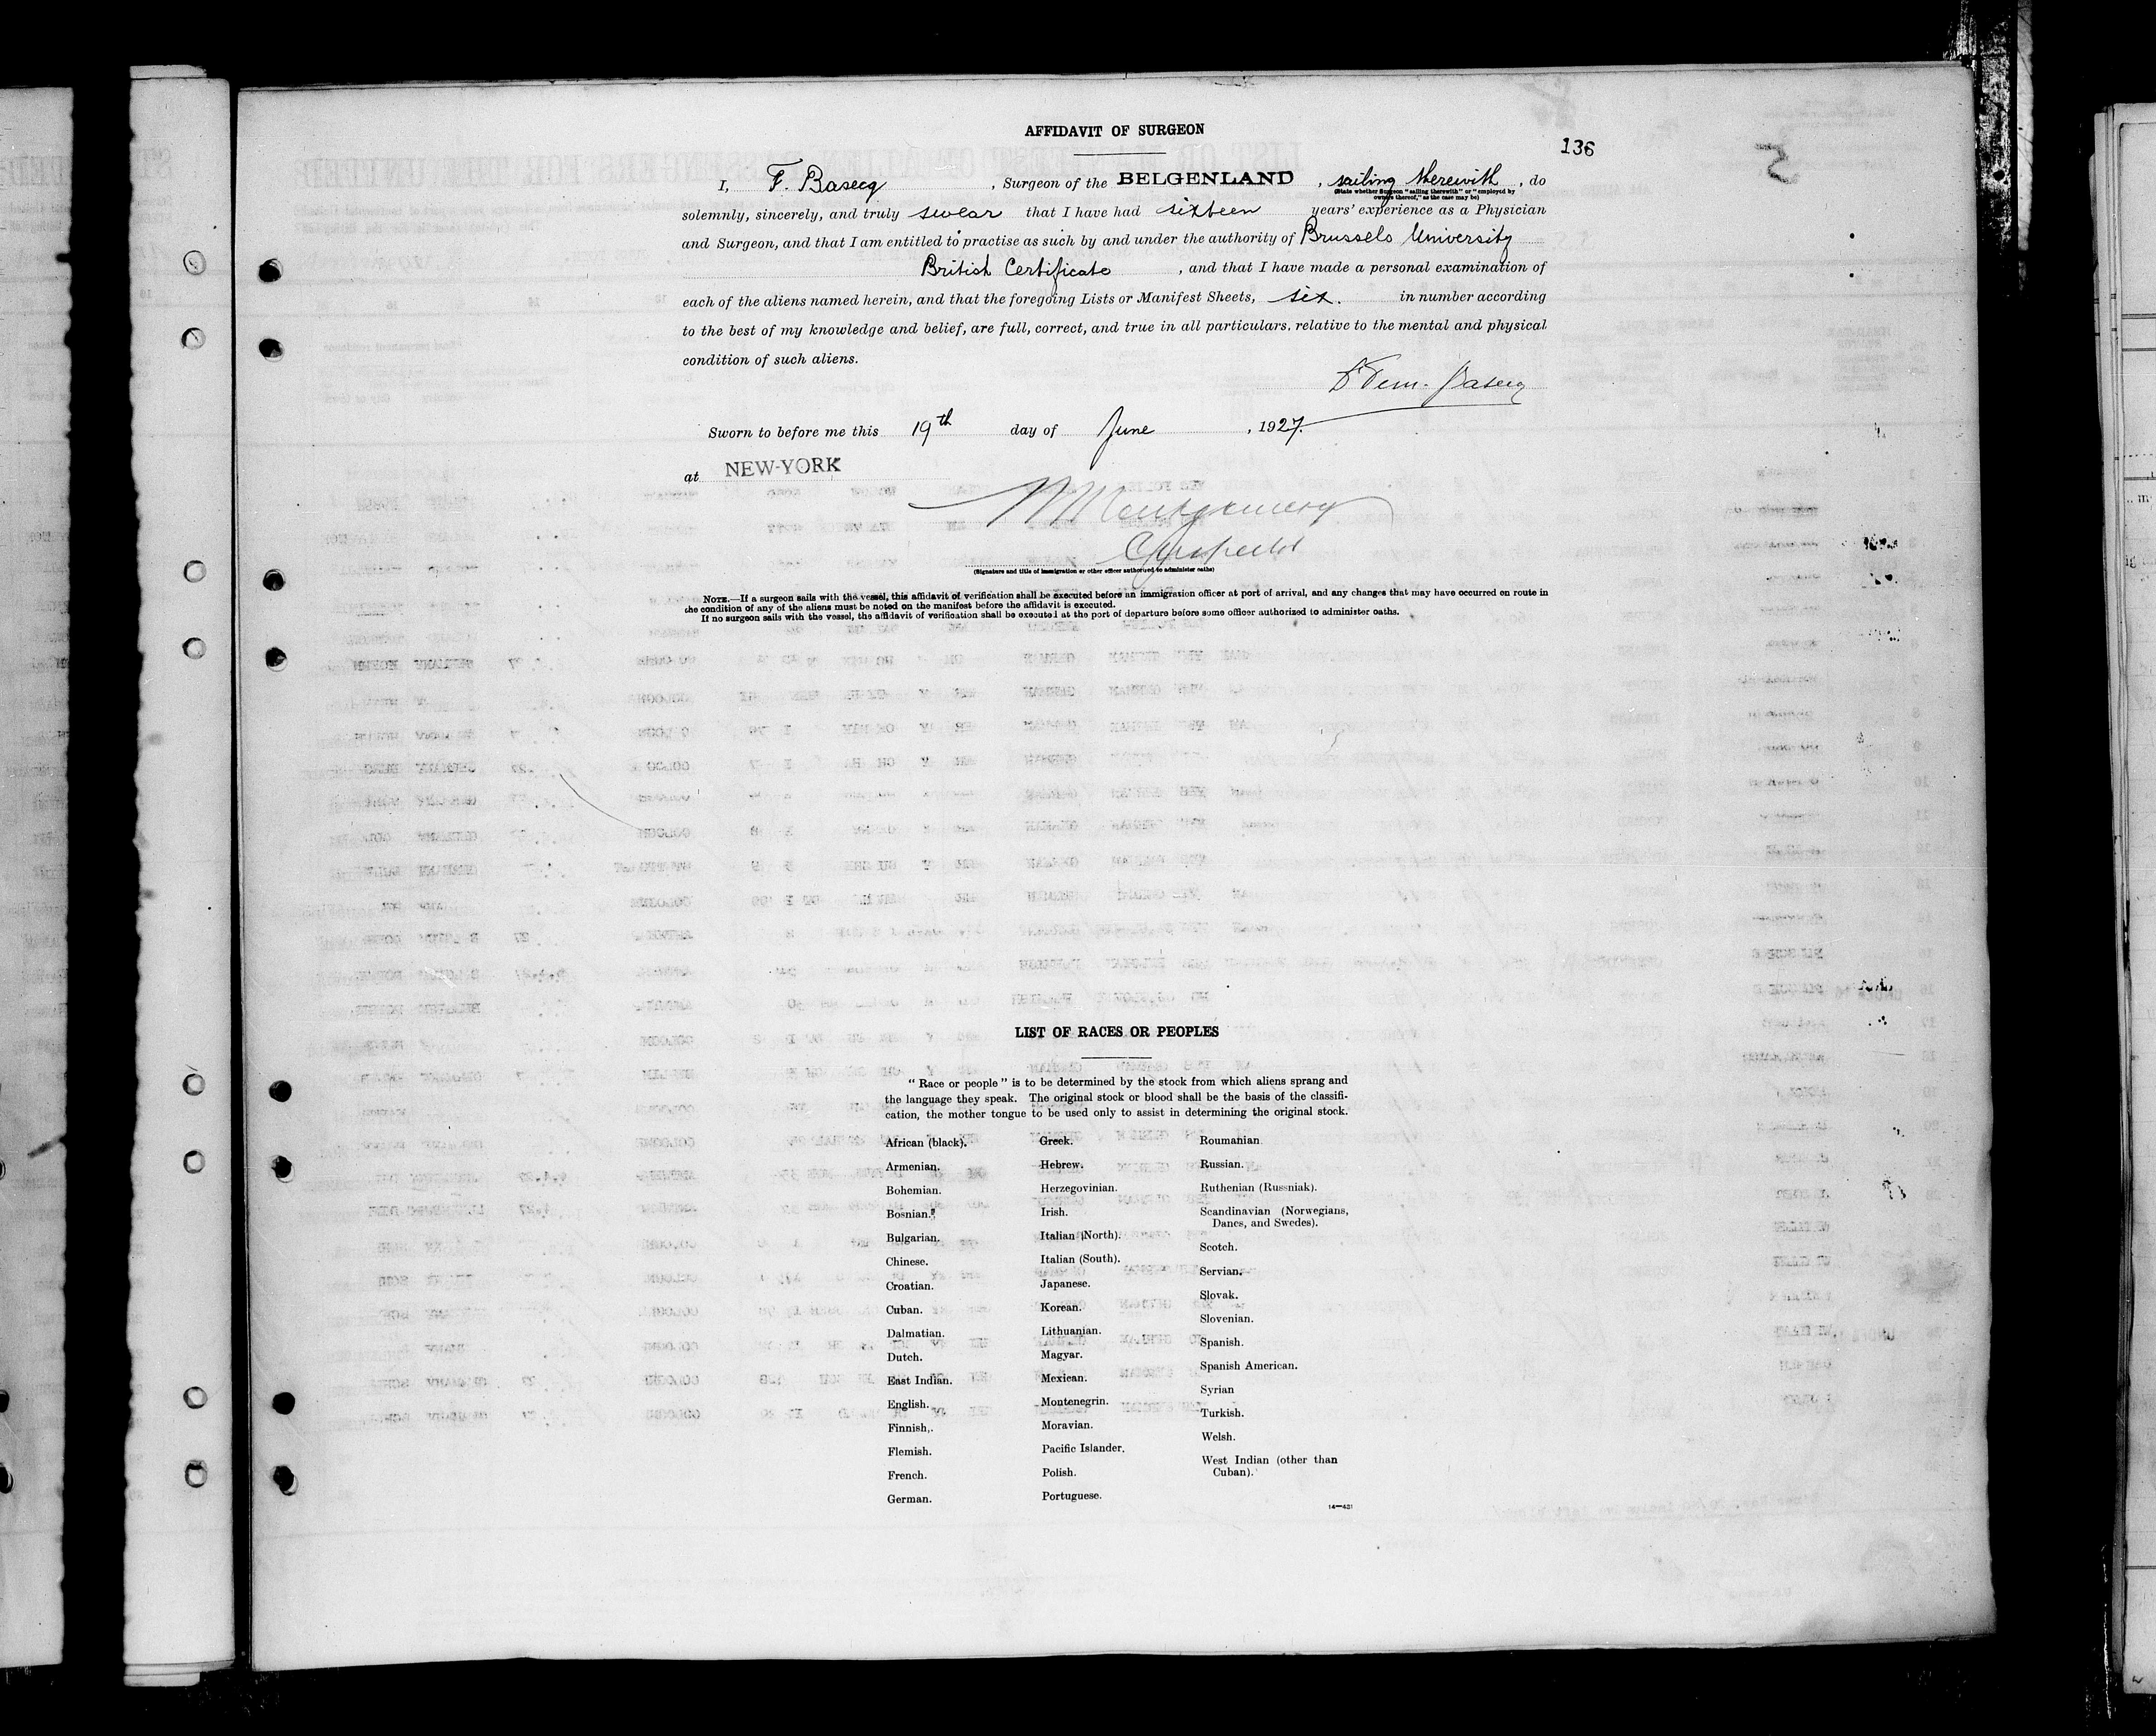 AFFIDAVIT OF SURGEON
136
I, F. Basecq, Surgeon of the BELGENLAND, sailing therewith, do
(State whether Surgeon "sailing therewith" or "employed by
owners thereof," as the case may be)
solemnly, sincerely, and truly swear that I have had sixteen years' experience as a Physician
and Surgeon, and that I am entitled to practise as such by and under the authority of Brussels University
British Certificate, and that I have made a personal examination of
each of the aliens named herein, and that the foregoing Lists or Manifest Sheets, six. in number according
to the best of my knowledge and belief, are full, correct, and true in all particulars, relative to the mental and physical
condition of such aliens.
Basecq
Sworn to before me this 19th day of June, 1927.
at NEW-YORK
Montgomery
(Signature and title of immigration or other officer authorized to administer oaths)
NOTE.—If a surgeon sails with the vessel, this affidavit of verification shall be executed before an immigration officer at port of arrival, and any changes that may have occurred en route in
the condition of any of the aliens must be noted on the manifest before the affidavit is executed.
If no surgeon sails with the vessel, the affidavit of verification shall be executed at the port of departure before some officer authorized to administer oaths.
LIST OF RACES OR PEOPLES
"Race or people" is to be determined by the stock from which aliens sprang and
the language they speak. The original stock or blood shall be the basis of the classifi-
cation, the mother tongue to be used only to assist in determining the original stock.
African (black).
Armenian.
Bohemian.
Bosnian.
Bulgarian.
Chinese.
Croatian.
Cuban.
Dalmatian.
Dutch.
East Indian.
English.
Finnish.
Flemish.
French.
German.
Greek.
Hebrew.
Herzegovinian.
Irish.
Italian (North).
Italian (South).
Japanese.
Korean.
Lithuanian.
Magyar.
Mexican.
Montenegrin.
Moravian.
Pacific Islander.
Polish.
Portuguese.
Roumanian
Russian.
Ruthenian (Russniak).
Scandinavian (Norwegians,
Danes, and Swedes).
Scotch.
Servian.
Slovak.
Slovenian.
Spanish.
Spanish American.
Syrian
Turkish.
Welsh.
West Indian (other than
Cuban).
14—431